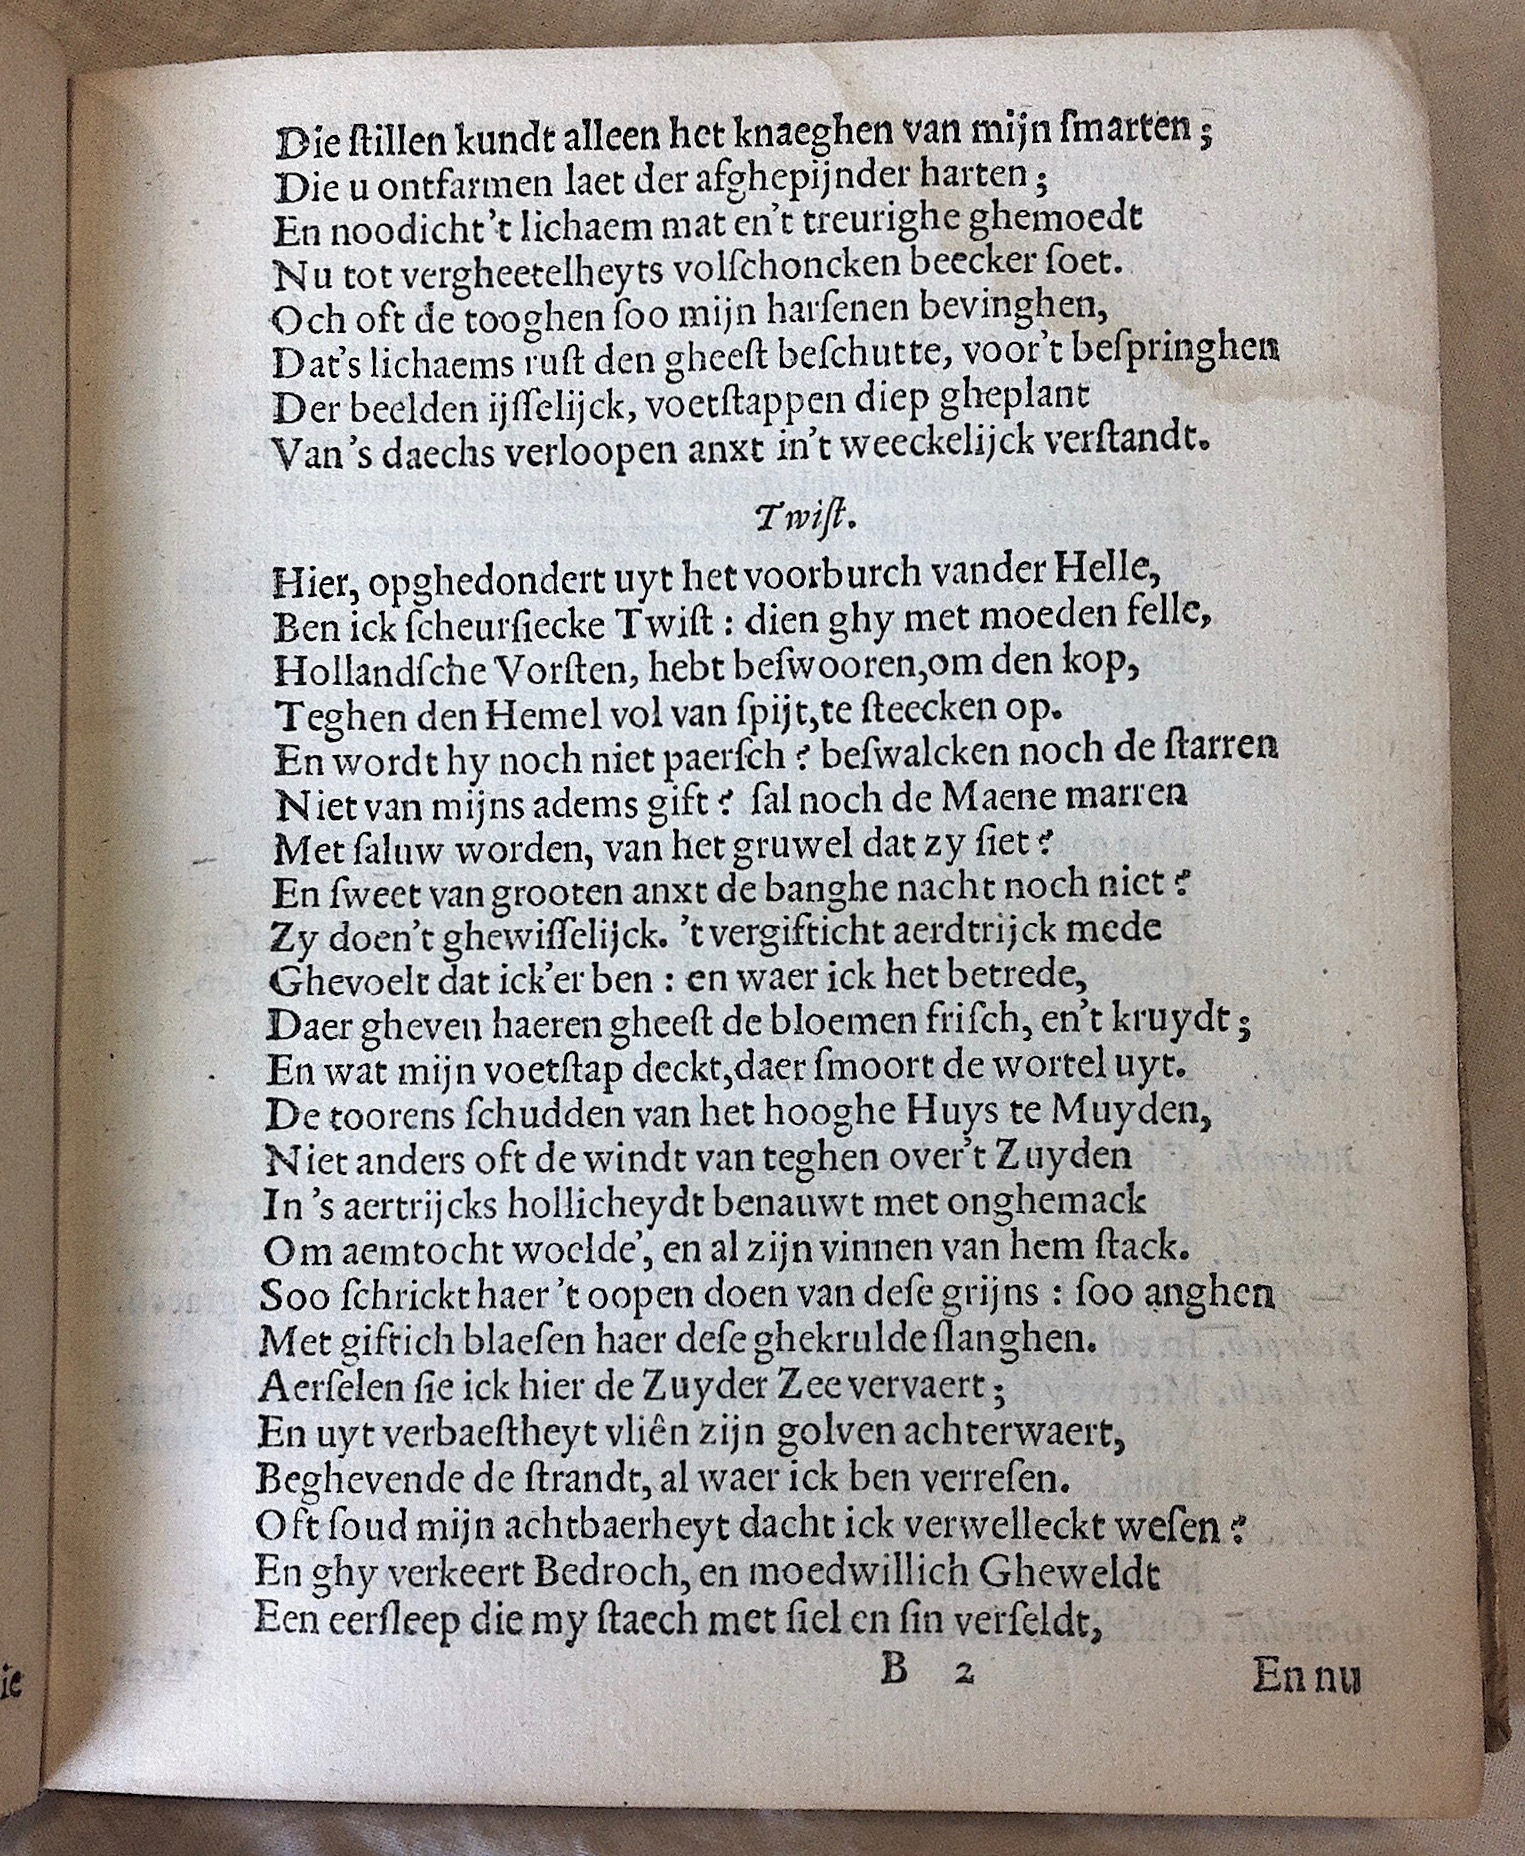 Die ſtillen kundt alleen het knaeghen van mijn ſmarten;
Die u ontfarmen laet der afghepijnder harten;
En noodicht 't lichaem mat en't treurighe ghemoedt
Nu tot vergheetelheyts volſchoncken beecker ſoet.
Och oft de tooghen ſoo mijn harſenen bevinghen,
Dat's lichaems ruſt den gheeſt beſchutte, voor't beſpringhen
Der beelden ijſſelijck, voetſtappen diep gheplant
Van 's daechs verloopen anxt in't weeckelijck verſtandt.
Twiſt.
Hier, opghedondert uyt het voorburch vander Helle,
Ben ick ſcheurſiecke Twiſt : dien ghy met moeden felle,
Hollandſche Vorſten, hebt beſwooren,om den kop,
Teghen den Hemel vol van ſpijt,te ſteecken op.
En wordt hy noch niet paerſch ? beſwalcken noch de ſtarren
Niet van mijns adems gift ? ſal noch de Maene marren
Met ſaluw worden, van het gruwel dat zy ſiet ?
En ſweet van grooten anxt de banghe nacht noch niet ?
Zy doen't ghewiſſelijck. 't vergifticht aerdtrijck mede
Ghevoelt dat ick'er ben : en waer ick het betrede,
Daer gheven haeren gheeſt de bloemen friſch, en't kruydt;
En wat mijn voetſtap deckt,daer ſmoort de wortel uyt.
De toorens ſchudden van het hooghe Huys te Muyden,
Niet anders oft de windt van teghen over't Zuyden
In 's aertrijcks hollicheydt benauwt met onghemack
Om aemtocht woelde', en al zijn vinnen van hem ſtack.
Soo ſchrickt haer 't oopen doen van deſe grijns : ſoo anghen
Met giftich blaeſen haer deſe ghekrulde ſlanghen.
Aerſelen ſie ick hier de Zuyder Zee vervaert;
En uyt verbaeſtheyt vliên zijn golven achterwaert,
Beghevende de ſtrandt, al waer ick ben verreſen.
Oft ſoud mijn achtbaerheyt dacht ick verwelleckt weſen ?
En ghy verkeert Bedroch, en moedwillich Gheweldt
Een eerſleep die my ſtaech met ſiel en ſin verſeldt,
B 2
En nu
ie